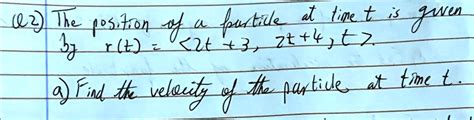 Q2) The position of a particle at time t is given
by r(t) = <2t +3, 2t+4, t>.
a) Find the velocity of the particle at time t.